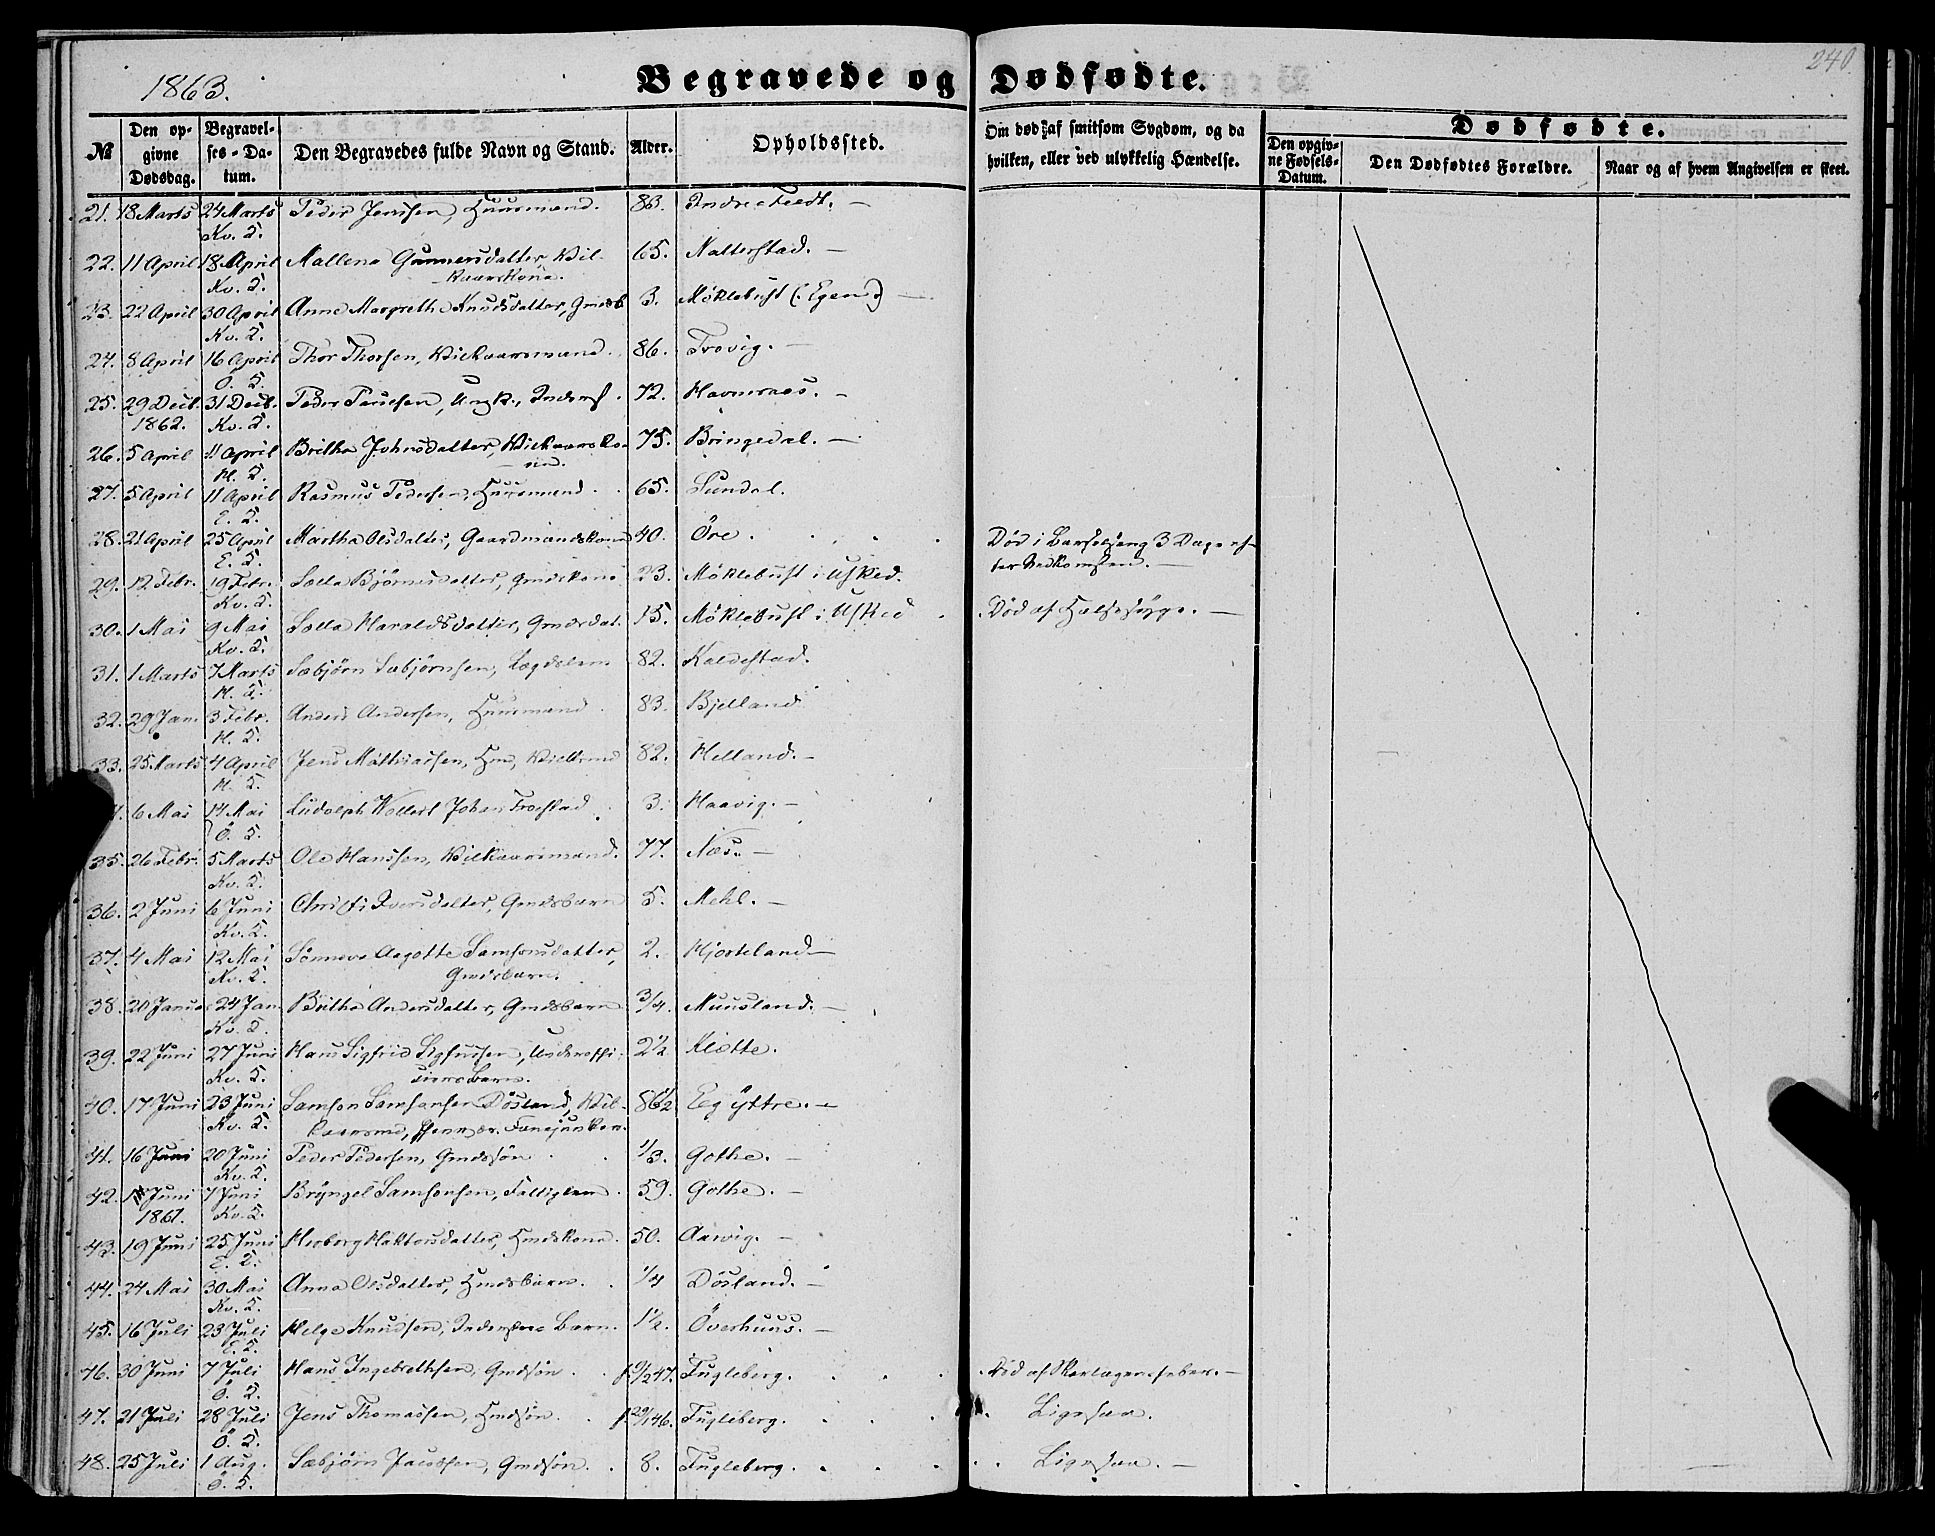 240.
1863.
Begravede og Dødfødte.
№ Den opgivne Dødsdag. Begravelses-Datum. Den Begravedes fulde Navn og Stand. Alder. Opholdssted. Om død af smitsom Sygdom, og da hvilken, eller ved ulykkelig Hændelse. Dødfødte. Den opgivne Fødsels-Datum. Den Dødfødtes Forældre. Naar og af hvem Angivelsen er skeet.
21. 18 Marts 24 Marts Peder Jenssen, Huusmand. 83. Indre Tvedt. —
Kv. S.
22. 11 April 18 April Mallene Gunnersdatter, Vil- 65. Natterstad. —
Kv. S. kaarskone.
23. 22 April 30 April Anne Margrethe Knudsdatter, Gmdsb 3. Møklebust (: Egen :) —
Kv. S.
24. 8 April 16 April Thor Thorsen, Vilkaarsmand. 86. Trovig. —
Ö. S.
25. 29 Decb. 31 Decb. Peder Poulsen, Ungk., Inderst. 72. Havnraas. —
1862. Kv. S.
26. 5 April 11 April Britha Johnsdatter, Vilkaarsko- 75. Bringedal. —
H. S. ne.
27. 5 April 11 April Rasmus Pedersen, Huusmand. 65. Sundal.
E. S.
28. 21 April 25 April Martha Olsdatter, Gaardmandskone 40. Öre. Død i Barselseng 3 Dage ef-
E. S. ter Nedkomsten. —
29. 12 Febr. 19 Febr. Salla Bjørnesdatter, Gmdskone 23. Møklebust i Usked.
Kv. S.
30. 1 Mai 9 Mai Salla Haraldsdatter, Gmdsdat. 15. Møklebust i Usked Død af Halsesyge. —
Kv. S.
31. 1 Marts 7 Marts Sæbjørn Sæbjørnsen, Lægdslem 82. Kaldestad.
H. S.
32. 29 Jan. 3 Febr. Anders Andersen, Huusmand. 83. Bjelland
H. S.
33. 25 Marts 4 April Jens Mathiassen, Hm, Vilkrmd 82. Helland. —
H. S.
6 Mai 14 Mai Ludolph Wollert Johan Frostad. 3. Haavig. —
Ö. S.
35. 26 Febr. 5 Marts Ole Hanssen, Vilkaarsmand. 77. Næs. —
Kv. S.
36. 2 Juni 6 Juni Christi Iversdatter, Gmdsbarn 5. Mehl. —
Kv. S.
37. 4 Mai 12 Mai Sønneve Aagotte Samsonsdatter, 2. Hjorteland —
Kv. S. Gmdsbarn.
38. 20 Januar 24 Jan. Britha Andersdatter, Gmdsbarn 3/4. Muusland. —
Kv. S.
39. 22 Juni 27 Juni Hans Sigfrid Sigfussen, Underoffi- 2½ Klette.
Kv. S. ciersbarn.
40. 17 Juni 23 Juni Samson Samsonsen Døsland, Vil- 86½ Eg yttre. —
Kv. S. kaarsmd,
41. 16 Juni 20 Juni Peder Pedersen, Gmdssøn 1/3. Gothe. —
Kv. S.
42. Juni 7 Juni Brÿngel Samsonsen, Fattiglem. 59. Gothe. —
1861. Kv. S.
43. 19 Juni 25 Juni Herborg Haktorsdatter, Hmdskone. 50. Aarvig. —
E. S.
44. 24 Mai 30 Mai Anna Olsdatter, Hmdsbarn. 1/4 Døsland. —
Kv. S.
45. 16 Juli 23 Juli Helge Knudsen, Inderstes Barn. 1½. Överhuus. —
E. S.
46. 30 Juni 7 Juli Hans Ingebrethsen, Gmdsøn. Fugleberg. Død af Skarlagensfeber. —
Ö. S.
47. 21 Juli 28 Juli Jens Thomassen, Hmdsøn. f. 29/1 46. Fugleberg. Ligesaa.
Ö. S.
48. 25 Juli 1 Aug. Sæbjørn Jacobsen, Gmdsøn. 8. Fugleberg. Ligesaa. —
Ö. S.